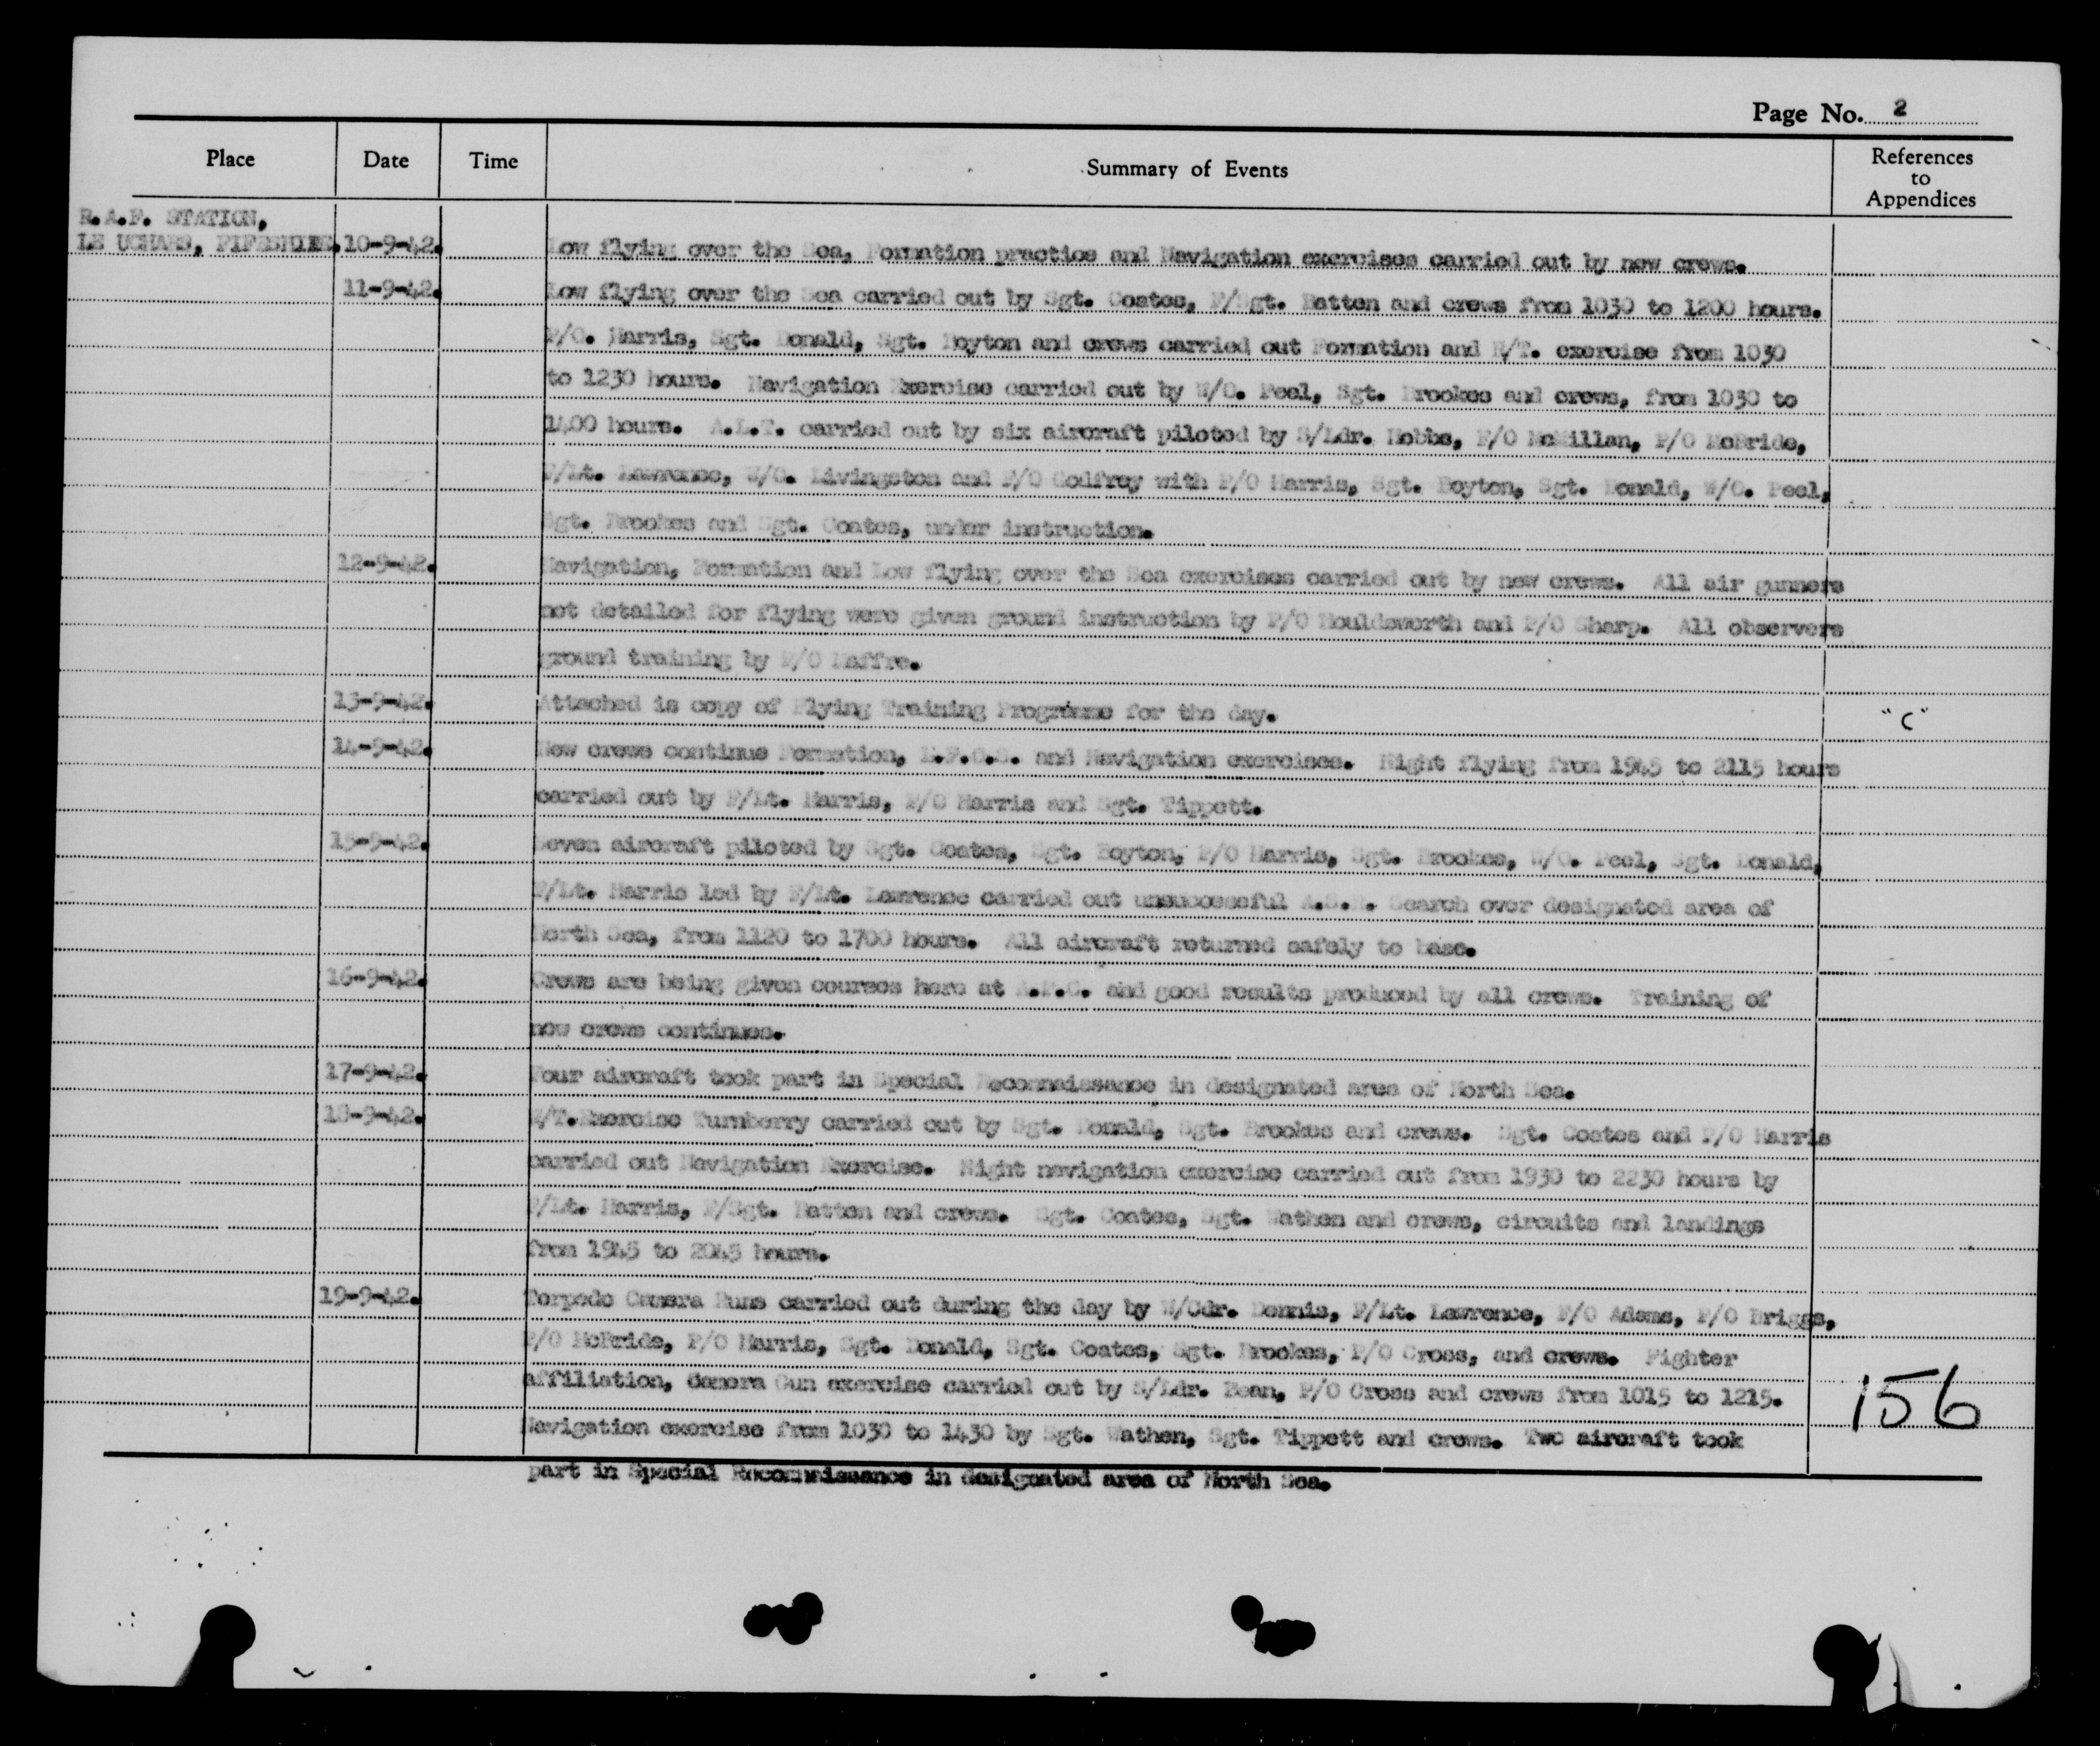 Page No. 2
Place Date Time Summary of Events References to Appendices
R.A.F. STATION,
LE UCHARS, FIFESHIRE. 10-9-42. Low flying over the Sea, Formation practice and Navigation exercises carried out by new crews.
11-9-42. Low flying over the Sea carried out by Sgt. Coates, F/Sgt. Batten and crews from 1030 to 1200 hours.
P/O. Harris, Sgt. Donald, Sgt. Boyton and crews carried out Formation and R/T. exercise from 1030
to 1230 hours. Navigation Exercise carried out by W/O. Peel, Sgt. Brookes and crews, from 1030 to
1400 hours. A.L.T. carried out by six aircraft piloted by S/Ldr. Hobbs, F/O McMillan, P/O McBride,
F/Lt. Lawrence, W/O. Livingston and P/O Godfrey with P/O Harris, Sgt. Boyton, Sgt. Donald, W/O. Peel,
Sgt. Brookes and Sgt. Coates, under instruction.
12-9-42. Navigation, Formation and Low flying over the Sea exercises carried out by new crews. All air gunners
not detailed for flying were given ground instruction by P/O Houldsworth and P/O Sharp. All observers
ground training by Maffre.
13-9-42. Attached is copy of Flying Training Programme for the day. "C"
14-9-42. New crews continue Formation, and Navigation exercises. Night flying from 1945 to 2115 hours
carried out by F/Lt. Harris, P/O Harris and Sgt. Tippett.
15-9-42. Seven aircraft piloted by Sgt. Coates, Sgt. Boyton, P/O Harris, Sgt. Brookes, W/O. Peel, Sgt. Donald,
F/Lt. Harris led by F/Lt. Lawrence carried out unsuccessful A.S.R. Search over designated area of
North Sea, from 1120 to 1700 hours. All aircraft returned safely to base.
16-9-42. Crews are being given courses here at and good results produced by all crews. Training of
new crews continues.
17-9-42. Four aircraft took part in Special Reconnaissance in designated area of North Sea.
18-9-42. R/T.Exercise Turnberry carried out by Sgt. Donald, Sgt. Brookes and crews. Sgt. Coates and P/O Harris
carried out Navigation Exercise. Night navigation exercise carried out from 1930 to 2230 hours by
F/Lt. Harris, F/Sgt. Batten and crews. Sgt. Coates, Sgt. Wathen and crews, circuits and landings
from 1945 to 2045 hours.
19-9-42. Torpedo Camera Runs carried out during the day by W/Cdr. Dennis, F/Lt. Lawrence, F/O Adams, P/O Briggs,
P/O McBride, P/O Harris, Sgt. Donald, Sgt. Coates, Sgt. Brookes, P/O Cross, and crews. Fighter
affiliation, camera Gun exercise carried out by S/Ldr. Bean, P/O Cross and crews from 1015 to 1215.
Navigation exercise from 1030 to 1430 by Sgt. Wathen, Sgt. Tippett and crews. Two aircraft took
part in Special Reconnaissance in designated area of North Sea.
156